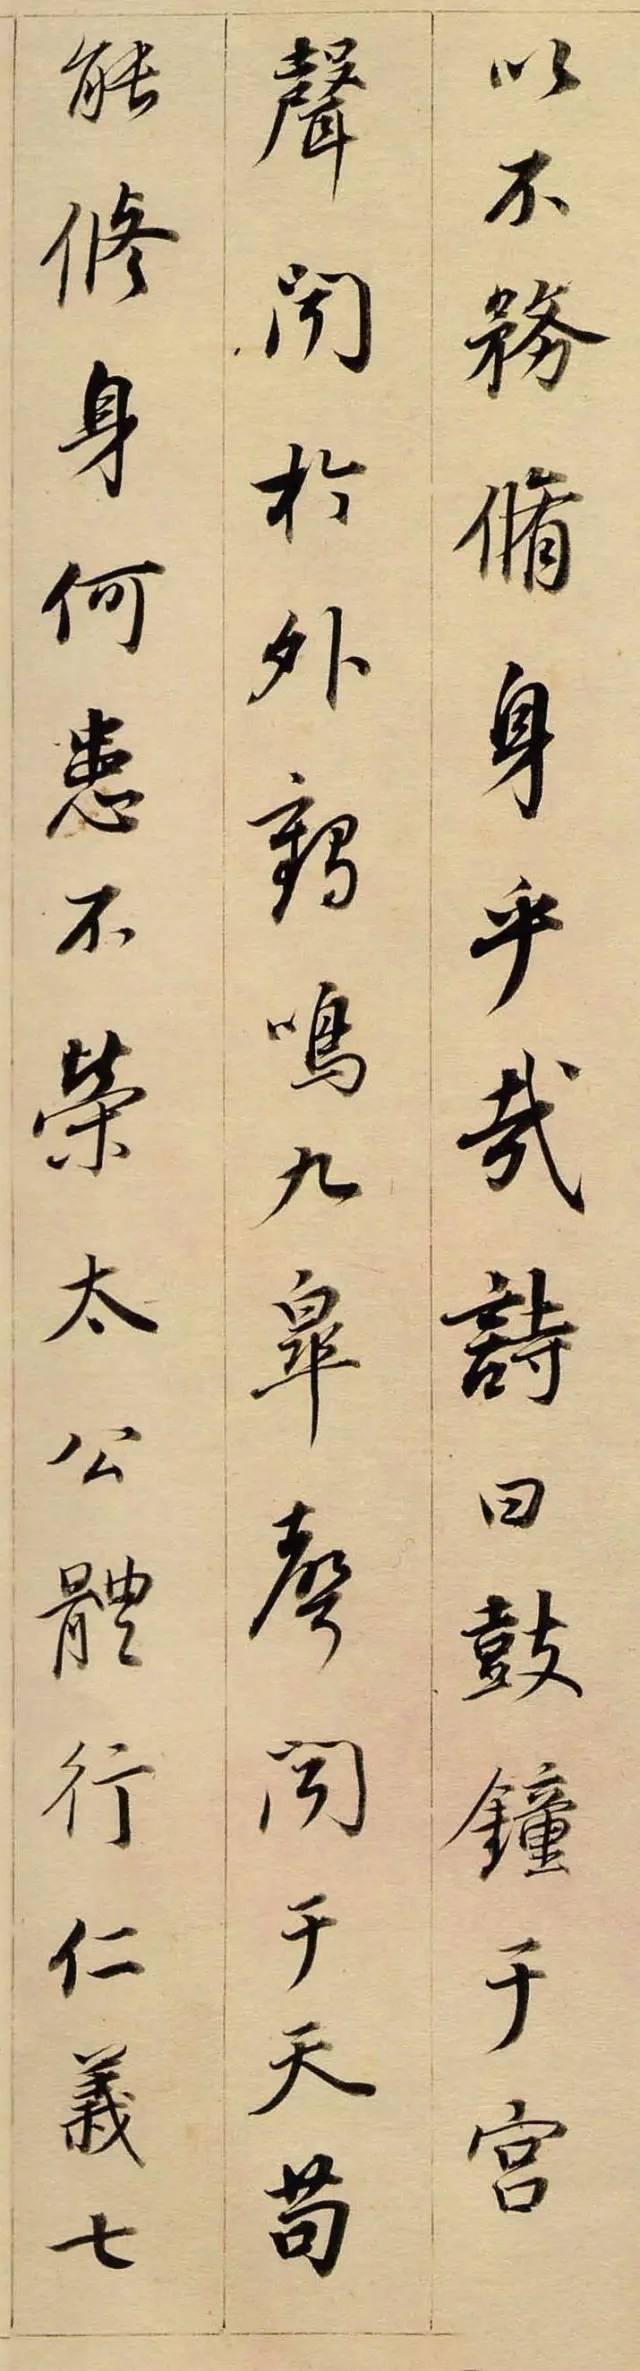 以不務脩身乎哉詩曰鼓鐘于宮
聲聞於外鶴鳴九皋聲聞于天苟
能修身何患不榮太公體行仁義七